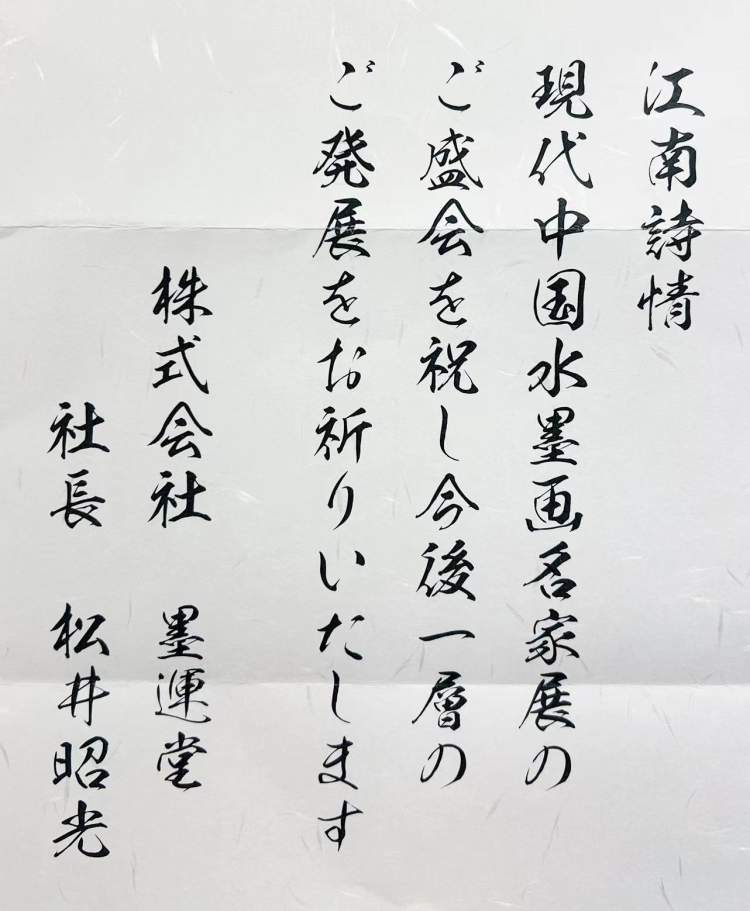 江南詩情
現代中国水墨画名家展の
ご盛会を祝し今後一層の
ご発展をお祈りいたします
株式会社 墨運堂
社長 松井昭光